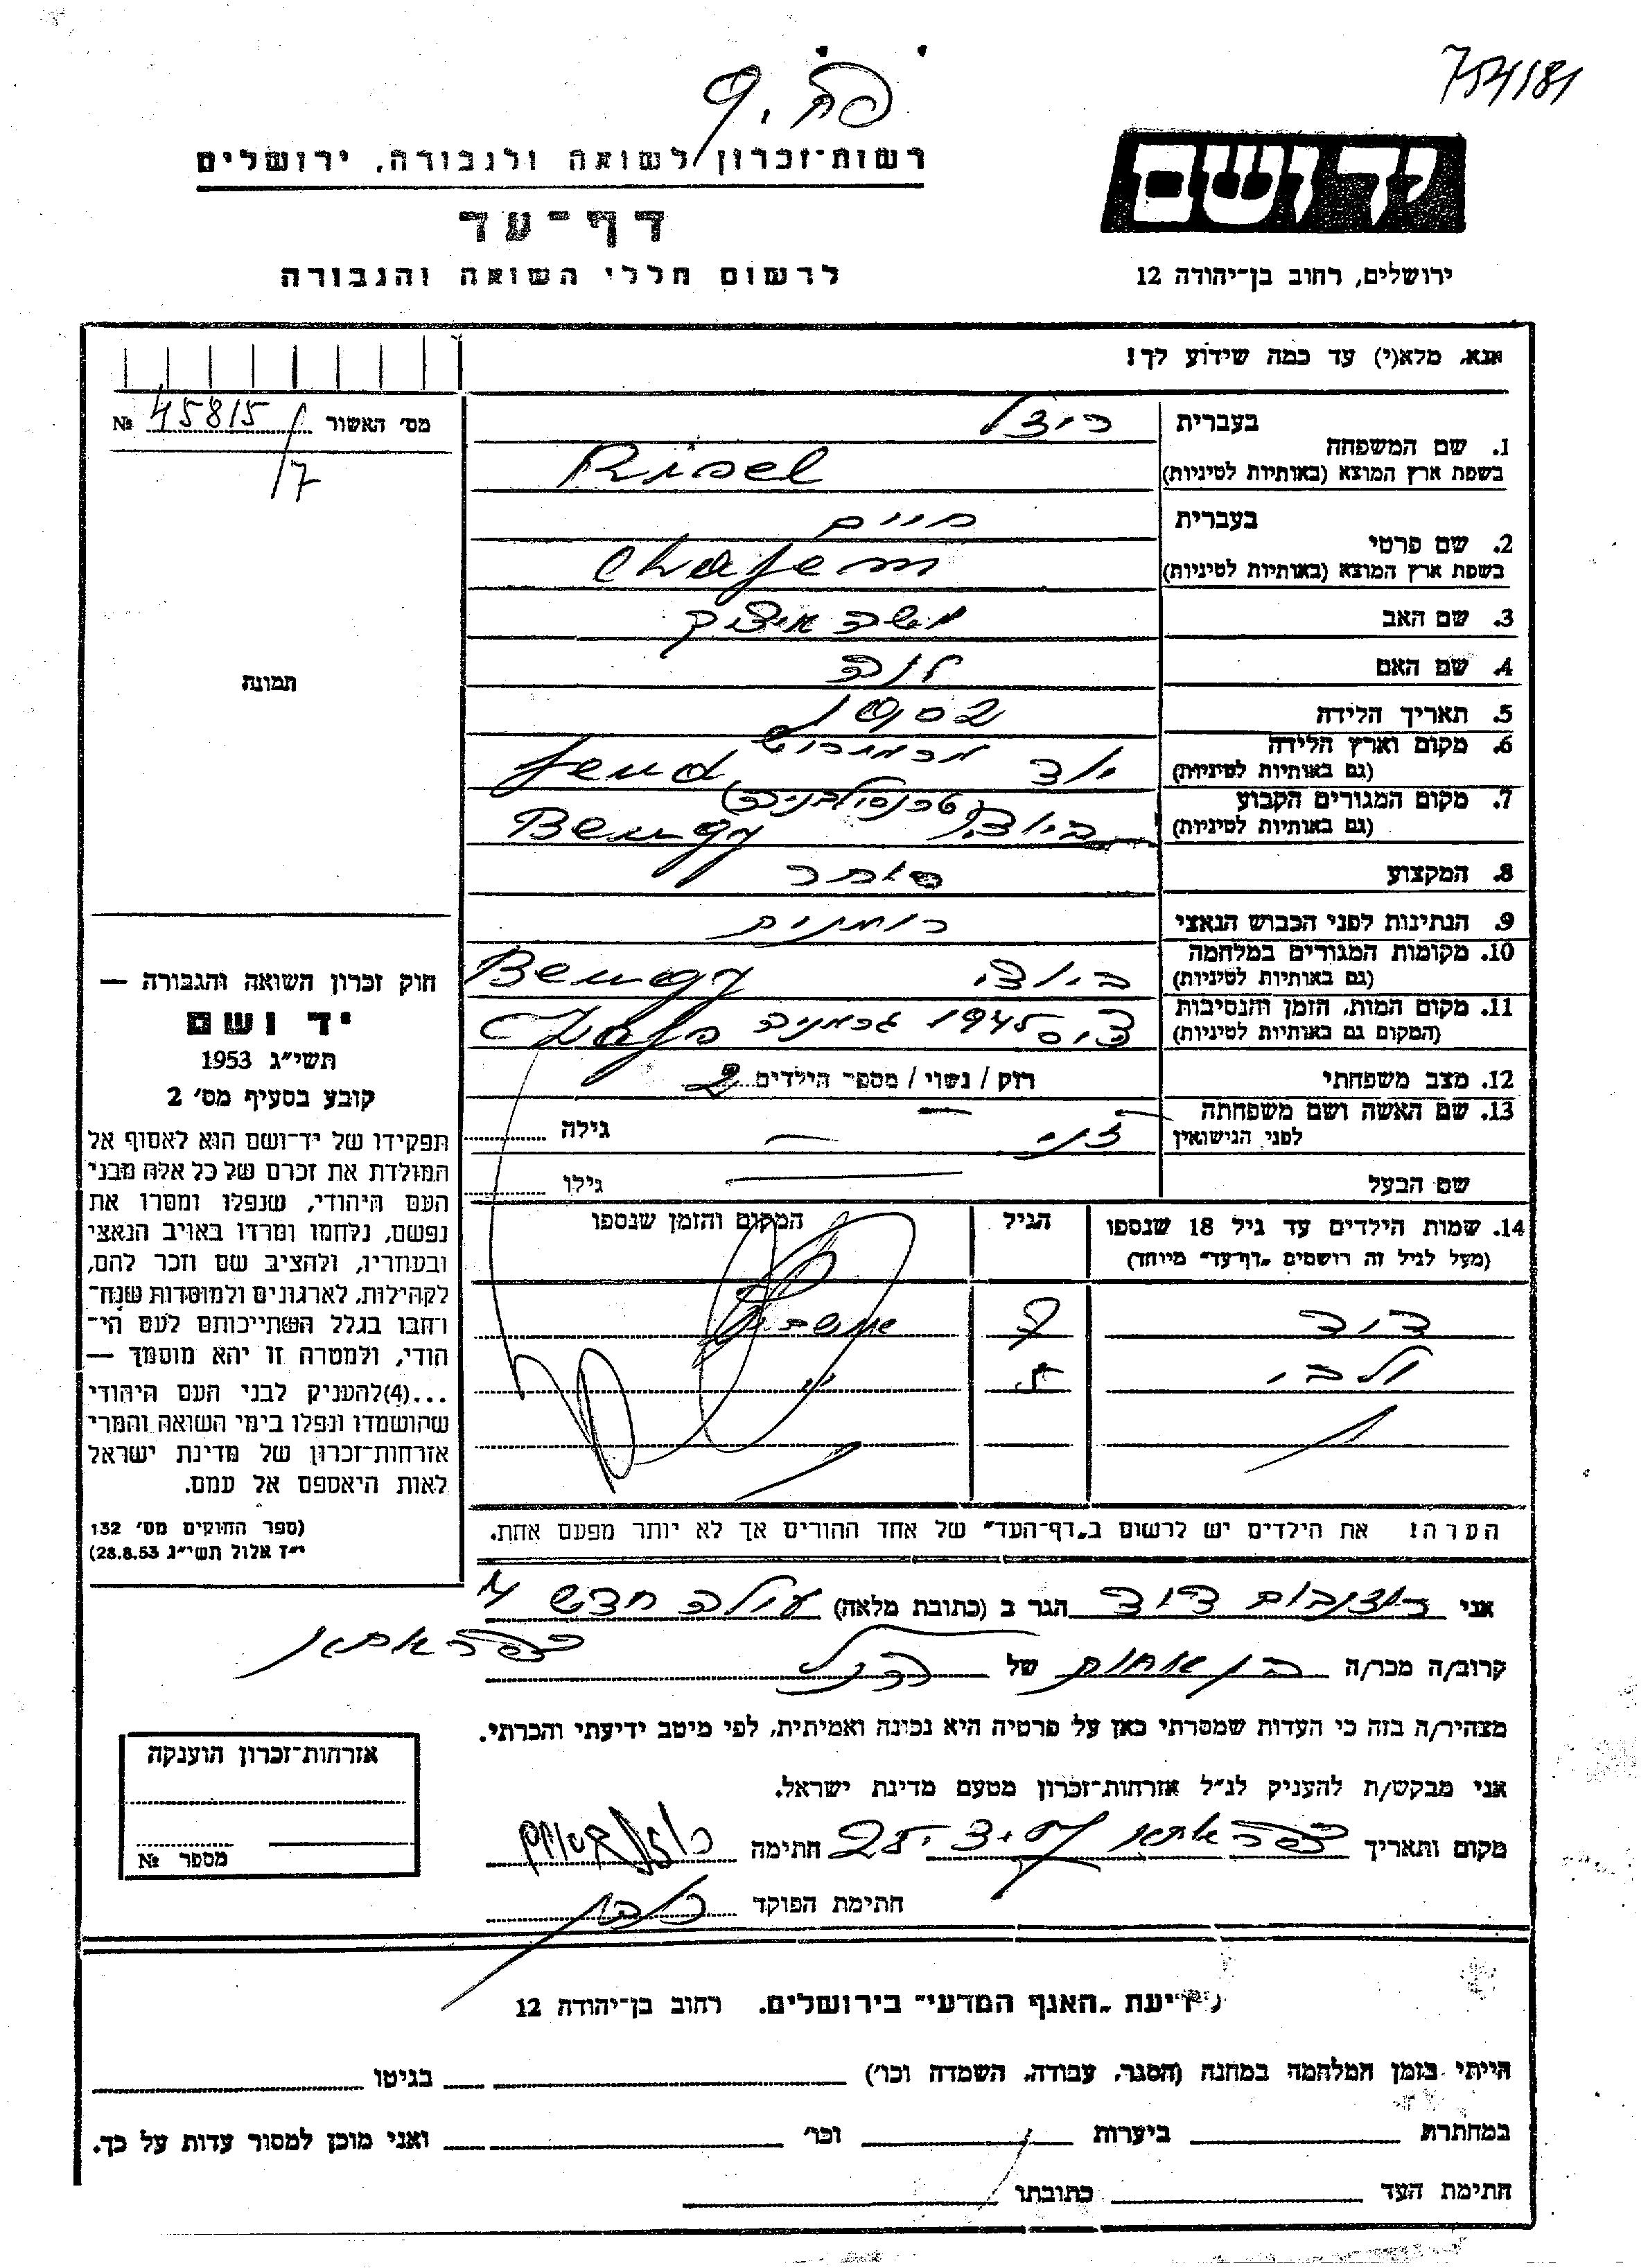 754181
פח. 9
יד ושם
רשות־זכרון לשואה ולגבורה, ירושלים
דף־עד
לרשום חללי השואה והגבורה
ירושלים, רחוב בן־יהודה 12
אנא, מלא(י) עד כמה שידוע לך!
מס׳ האשור 45815 №
/7
1. שם המשפחה
בעברית ריזל
בשפת ארץ המוצא (באותיות לטיניות) Risel
2. שם פרטי
בעברית חיים
בשפת ארץ המוצא (באותיות לטיניות) Chajem
3. שם האב משה איציק
4. שם האם
5. תאריך הלידה 1902
6. מקום וארץ הלידה
(גם באותיות לטיניות) יוד מרמורש Jeud
7. מקום המגורים הקבוע
(גם באותיות לטיניות) (טרנסילבניה)
8. המקצוע סוחר
9. הנתינות לפני הכבוש הנאצי רומנית
10. מקומות המגורים במלחמה
(גם באותיות לטיניות)
11. מקום המות, הזמן והנסיבות
(המקום גם באותיות לטיניות) 1945 גרמניה
12. מצב משפחתי רוק / נשוי / מספר הילדים 2
13. שם האשה ושם משפחתה
לפני הנישואין גילה
שם הבעל גילו
14. שמות הילדים עד גיל 18 שנספו הגיל המקום והזמן שנספו
(מעל לגיל זה רושמים „דף־עד״ מיוחד)
דוד
הערה! את הילדים יש לרשום ב„דף־העד״ של אחד ההורים אך לא יותר מפעם אחת.
תמונה
חוק זכרון השואה והגבורה —
יד ושם
תשי״ג 1953
קובע בסעיף מס׳ 2
תפקידו של יד־ושם הוא לאסוף אל
המולדת את זכרם של כל אלה מבני
העם היהודי, שנפלו ומסרו את
נפשם, נלחמו ומרדו באויב הנאצי
ובעוזריו, ולהציב שם וזכר להם,
לקהילות, לארגונים ולמוסדות שנח־
רחבו בגלל השתייכותם לעם הי־
הודי, ולמטרה זו יהא מוסמך —
...(4)להעניק לבני העם היהודי
שהושמדו ונפלו בימי השואה והמרי
אזרחות־זכרון של מדינת ישראל
לאות היאספם אל עמם.
(ספר החוקים מס׳ 132
י״ז אלול תשי״ג 28.8.53)
אני רוזנבוים דוד הגר ב (כתובת מלאה) עולה חדש
כפר אתא
קרוב/ה מכר/ה בן אחות של הנ״ל
מצהיר/ה בזה כי העדות שמסרתי כאן על פרטיה היא נכונה ואמיתית, לפי מיטב ידיעתי והכרתי.
אני מבקש/ת להעניק לנ״ל אזרחות־זכרון מטעם מדינת ישראל.
מקום ותאריך כפר אתא חתימה
חתימת הפוקד
אזרחות־זכרון הוענקה
מספר №
לידיעת „האגף המדעי״ בירושלים. רחוב בן־יהודה 12
הייתי בזמן המלחמה במחנה (הסגר, עבודה, השמדה וכו׳) בגיטו
במחתרת ביערות וכו׳ ואני מוכן למסור עדות על כך.
חתימת העד כתובתו